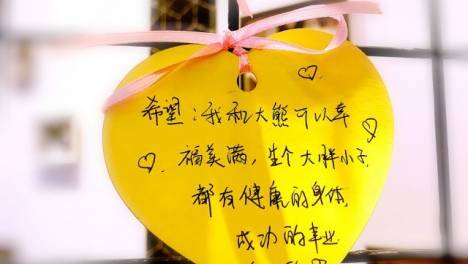 希望：我和大熊可以幸
福美满，生个大胖小子
都有健康的身体
成功的事业